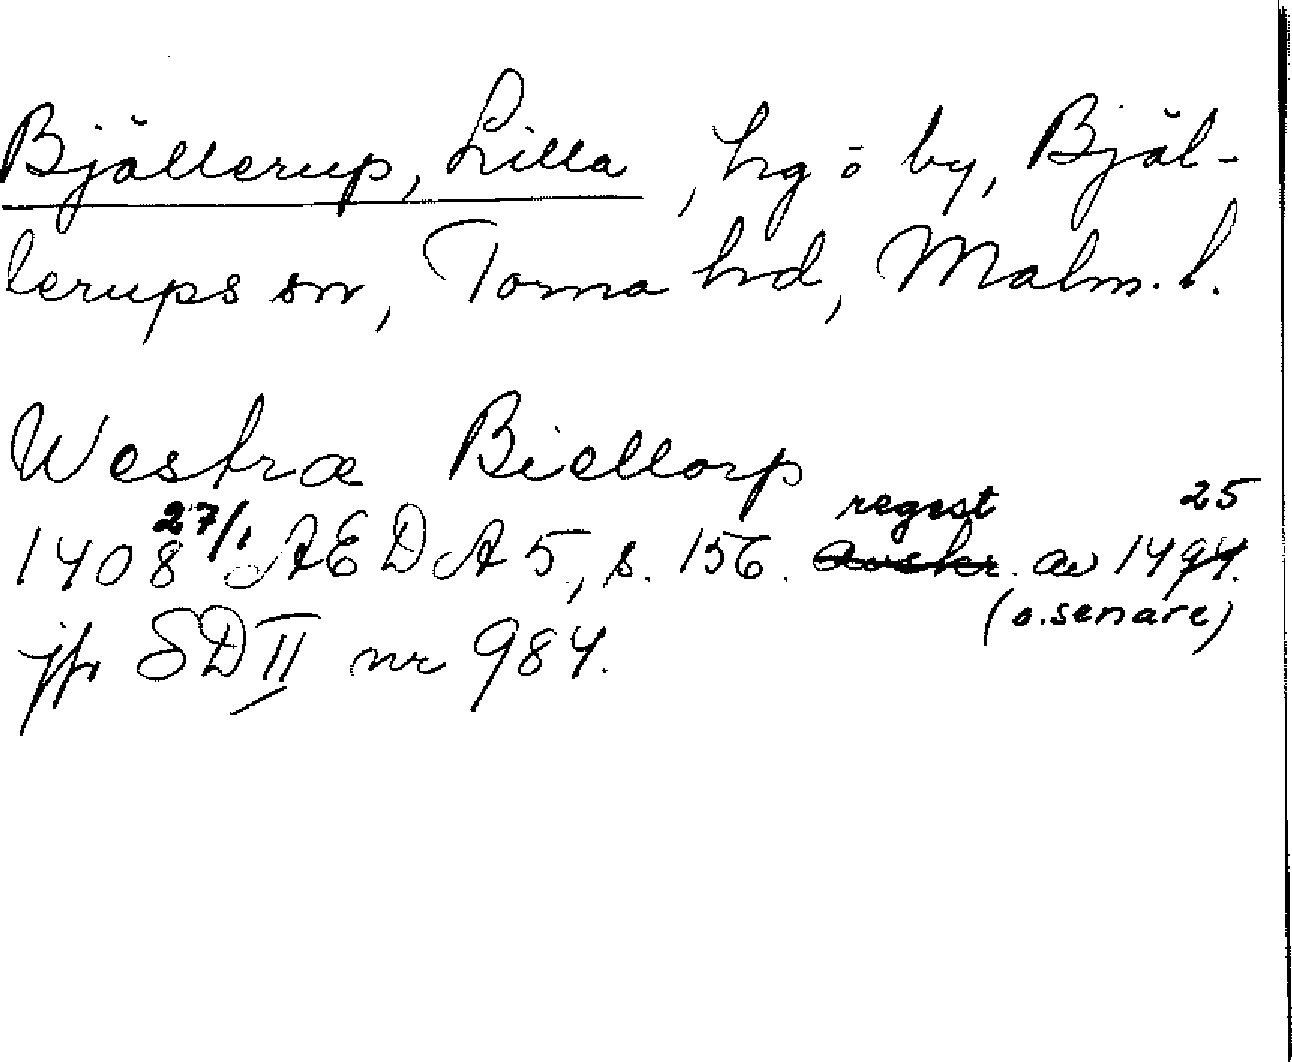 Bjällerup, Lilla, hg o by, Bjäl-
lerups sn, Torna hd, Malm. l.
Westræ Biellorp
regest 25
1408 27/1 AEDA 5, s. 156. avskr. av 1494.
(o. senare)
jfr SD II nr 984.